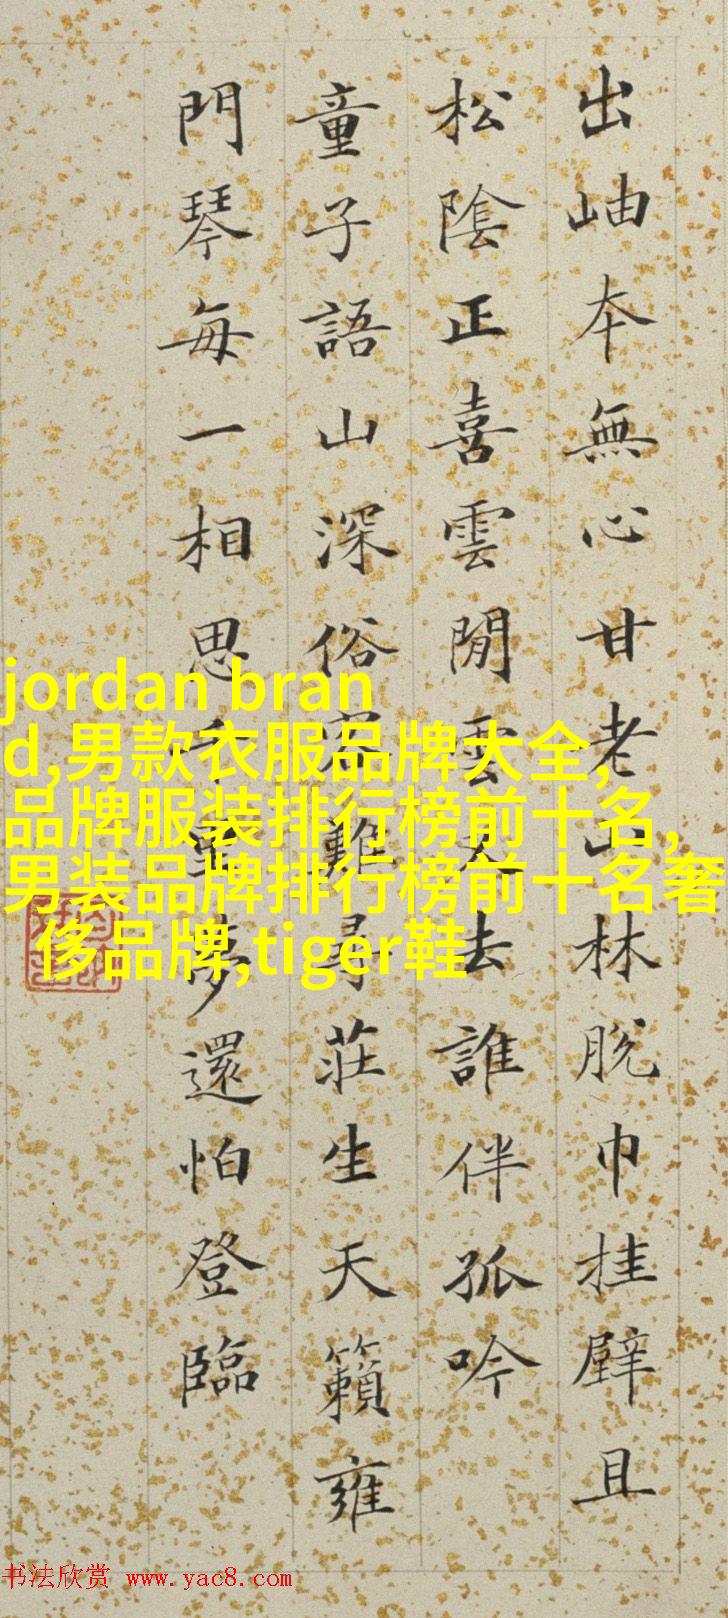 出岫本無心甘老山林脫巾挂壁且
松陰正喜雲閒雲又去誰伴孤吟
童子語山深俗客難尋莊生天籟雍
門琴每一相思千里夢還怕登臨
jordan bran
d,男款衣服品牌大全,
品牌服装排行榜前十名,
男装品牌排行榜前十名奢
侈品牌,tiger鞋
书法欣赏 www.yac8.com